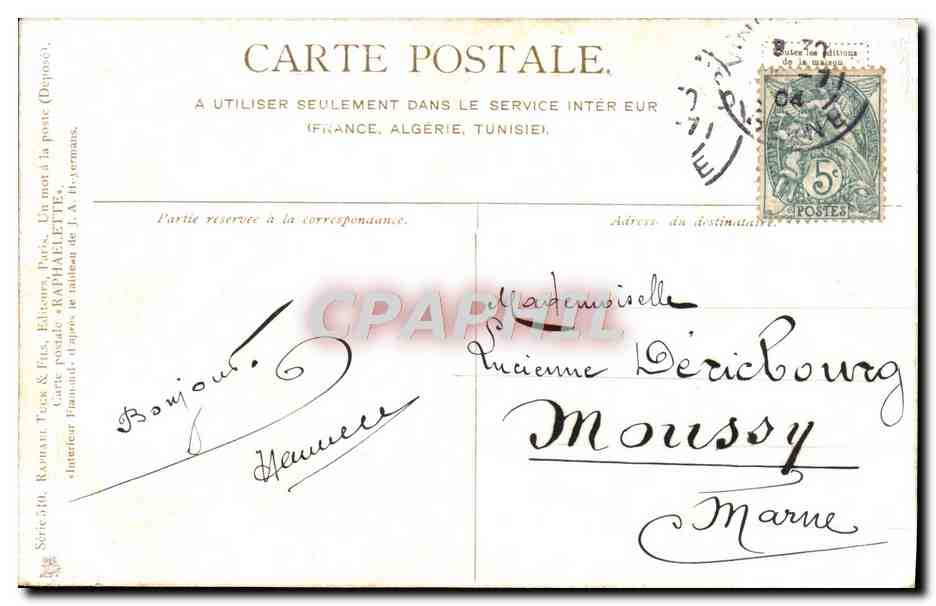 CARTE POSTALE.
A UTILISER SEULEMENT DANS LE SERVICE INTÉR EUR
(FRANCE, ALGÉRIE, TUNISIE).
toutes les éditions
de la maison
04
MARNE
5c
POSTES
Partie reservee à la correspondance.
Adresse du destinataire.
Bonjour.
Mademoiselle
Lucienne Déricbourg
Moussy
Marne
CPAPHIL
Série 540. RAPHAEL TUCK & FILS, Editeurs, Paris. Un mot à la poste (Deposé).
Carte postale «RAPHAELETTE».
«Interieur Flamand» d'après le tableau de J. A. Heyermans.